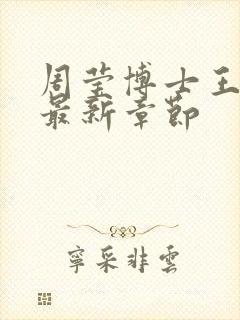 周莹博士王
最新章節
寧采非雲